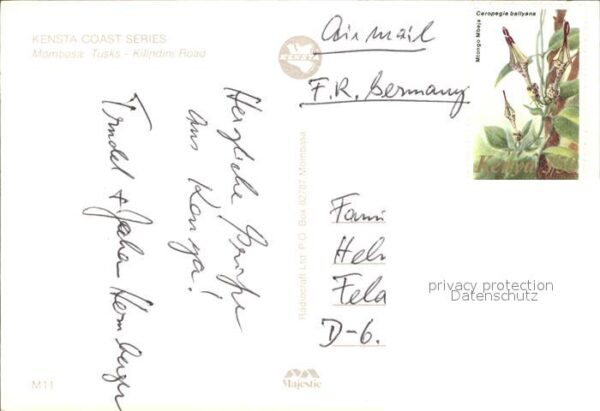 KENSTA COAST SERIES
Mombasa: Tusks - Kilindini Road
KENSTA
Air mail
F.R. Germany
Ceropegia ballyana
Mtongo Mbeja
Kenya
Herzliche Grüße
aus Kenya!
Trudel +
Radiocraft Ltd. P.O. Box 82787 Mombasa
Fami
Hel
Fela
D-6.
privacy protection
Datenschutz
M11
Majestic